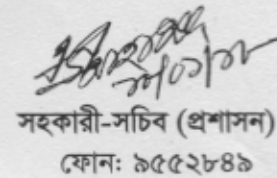 সহকারী-সচিব (প্রশাসন)
ফোনঃ ৯৫৫২৮৪৯